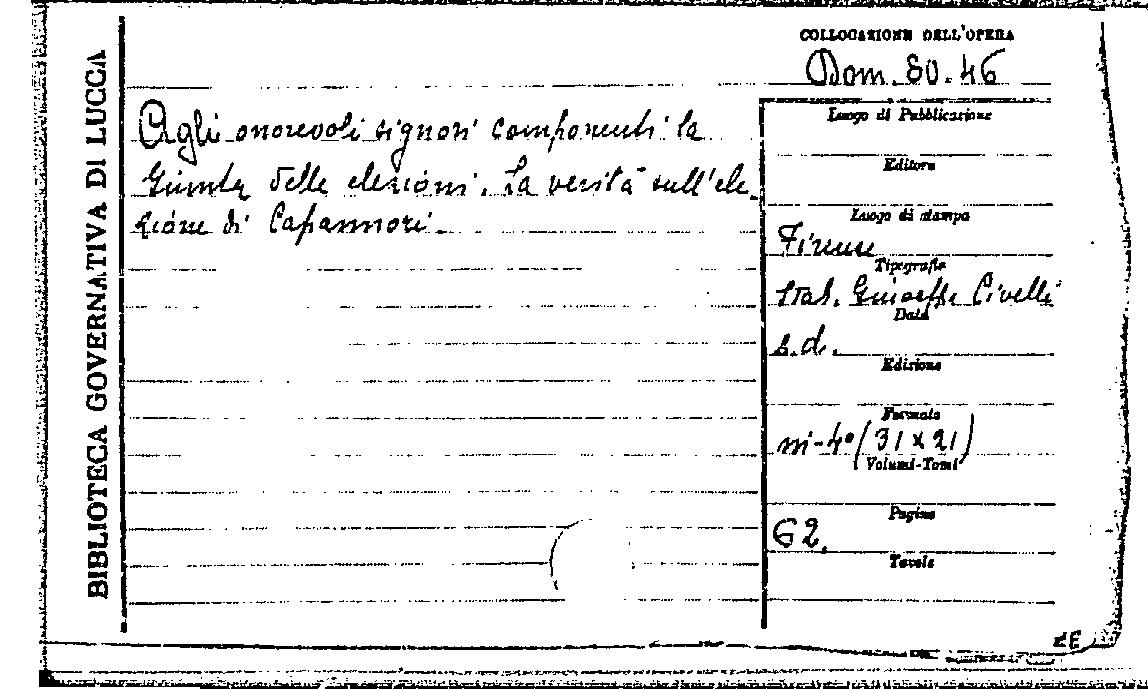 BIBLIOTECA GOVERNATIVA DI LUCCA
COLLOCAZIONE DELL'OPERA
Dom. 80.46
Agli onorevoli signori componenti la
Giunta delle elezioni. La verità sull'ele-
zione di Capannori.
Luogo di Pubblicazione
Editore
Luogo di stampa
Firenze
Tipografia
Stab. Giuseppe Civelli
Data
s.d.
Edizione
Formato
in-4° (31 x 21)
Volumi-Tomi
Pagine
62.
Tavole